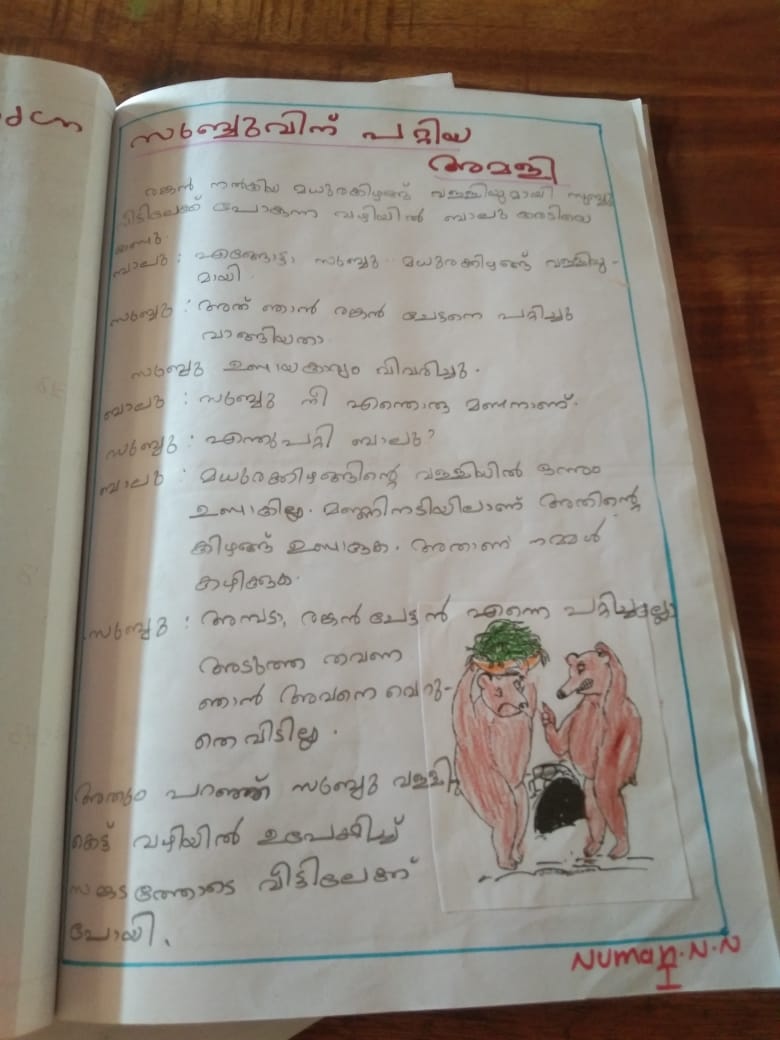 സഞ്ചുവിന് പറ്റിയ
അമളി
രങ്കൻ നൽകിയ മധുരക്കിഴങ്ങ് വള്ളിയുമായി സഞ്ചു
വീട്ടിലേക്ക് പോകുന്ന വഴിയിൽ ബാലു കരടിയെ
കണ്ടു.
ബാലു : എങ്ങോട്ടാ സഞ്ചു മധുരക്കിഴങ്ങ് വള്ളിയു-
മായി.
സഞ്ചു : അത് ഞാൻ രങ്കൻ ചേട്ടനെ പറ്റിച്ചു
വാങ്ങിയതാ.
സഞ്ചു ഉണ്ടായകാര്യം വിവരിച്ചു.
ബാലു : സഞ്ചു നീ എന്തൊരു മണ്ടനാണ്.
സഞ്ചു : എന്തുപറ്റി ബാലു?
ബാലു : മധുരക്കിഴങ്ങിന്റെ വള്ളിയിൽ ഒന്നും
ഉണ്ടാകില്ല. മണ്ണിനടിയിലാണ് അതിന്റെ
കിഴങ്ങ് ഉണ്ടാകുക. അതാണ് നമ്മൾ
കഴിക്കുക.
സഞ്ചു : അമ്പടാ, രങ്കൻ ചേട്ടൻ എന്നെ പറ്റിച്ചല്ലോ
അടുത്ത തവണ
ഞാൻ അവനെ വെറു-
തെ വിടില്ല.
അതും പറഞ്ഞ് സഞ്ചു വള്ളി
കെട്ട് വഴിയിൽ ഉപേക്ഷിച്ച്
സങ്കടത്തോടെ വീട്ടിലേക്ക്
പോയി.
Numan.N.N
I